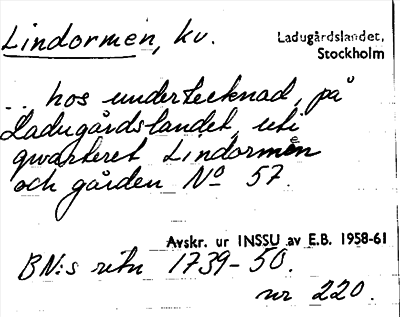 Lindormen, kv.
Ladugårdslandet,
Stockholm
... hos undertecknad, på
Ladugårdslandet uti
qwarteret Lindormen
och gården No 57.
Avskr. ur INSSU av E.B. 1958-61
BN:s retn 1739-50.
nr 220.